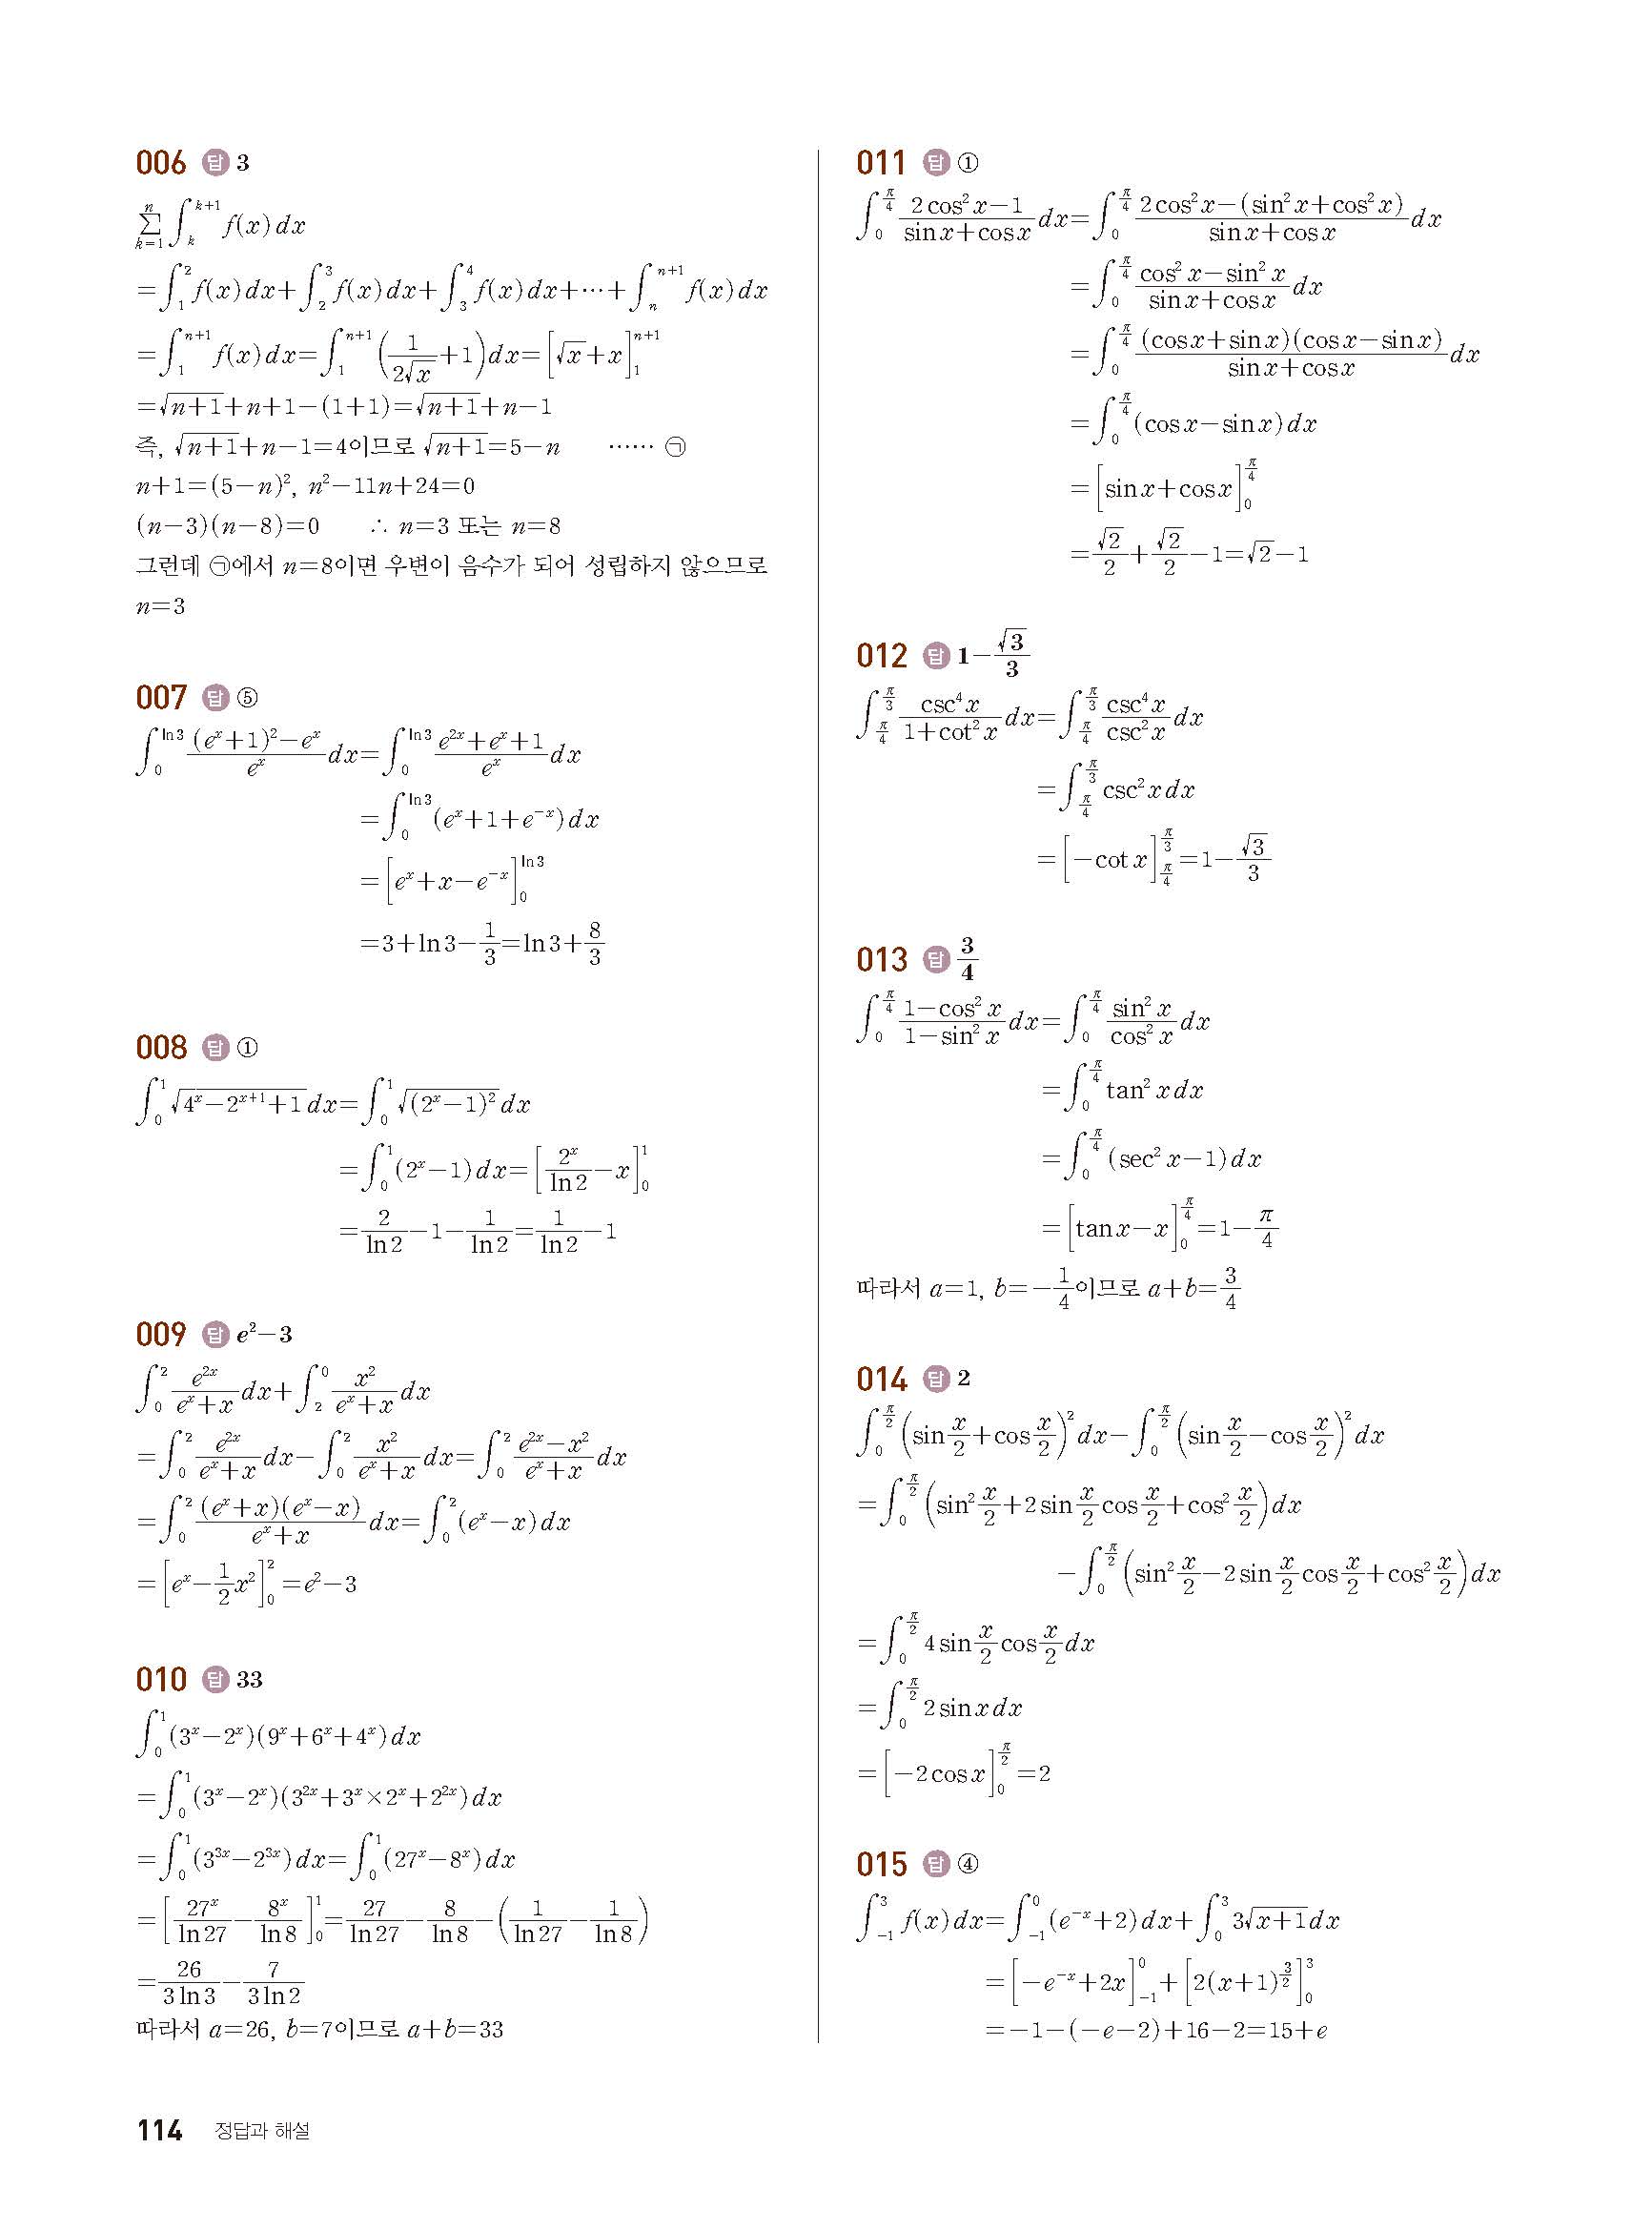 006 답 3
$\sum_{k=1}^{n}\int_{k}^{k+1} f(x)\,dx$
$=\int_{1}^{2} f(x)\,dx+\int_{2}^{3} f(x)\,dx+\int_{3}^{4} f(x)\,dx+\cdots+\int_{n}^{n+1} f(x)\,dx$
$=\int_{1}^{n+1} f(x)\,dx=\int_{1}^{n+1}\left(\frac{1}{2\sqrt{x}}+1\right)dx=\left[\sqrt{x}+x\right]_{1}^{n+1}$
$=\sqrt{n+1}+n+1-(1+1)=\sqrt{n+1}+n-1$
즉, $\sqrt{n+1}+n-1=4$이므로 $\sqrt{n+1}=5-n$ …… ㉠
$n+1=(5-n)^2,\ n^2-11n+24=0$
$(n-3)(n-8)=0$ ∴ $n=3$ 또는 $n=8$
그런데 ㉠에서 $n=8$이면 우변이 음수가 되어 성립하지 않으므로
$n=3$
007 답 ⑤
$\int_{0}^{\ln 3}\frac{(e^x+1)^2-e^x}{e^x}dx=\int_{0}^{\ln 3}\frac{e^{2x}+e^x+1}{e^x}dx$
$=\int_{0}^{\ln 3}(e^x+1+e^{-x})dx$
$=\left[e^x+x-e^{-x}\right]_{0}^{\ln 3}$
$=3+\ln 3-\frac{1}{3}=\ln 3+\frac{8}{3}$
008 답 ①
$\int_{0}^{1}\sqrt{4^x-2^{x+1}+1}\,dx=\int_{0}^{1}\sqrt{(2^x-1)^2}\,dx$
$=\int_{0}^{1}(2^x-1)dx=\left[\frac{2^x}{\ln 2}-x\right]_{0}^{1}$
$=\frac{2}{\ln 2}-1-\frac{1}{\ln 2}=\frac{1}{\ln 2}-1$
009 답 $e^2-3$
$\int_{0}^{2}\frac{e^{2x}}{e^x+x}dx+\int_{2}^{0}\frac{x^2}{e^x+x}dx$
$=\int_{0}^{2}\frac{e^{2x}}{e^x+x}dx-\int_{0}^{2}\frac{x^2}{e^x+x}dx=\int_{0}^{2}\frac{e^{2x}-x^2}{e^x+x}dx$
$=\int_{0}^{2}\frac{(e^x+x)(e^x-x)}{e^x+x}dx=\int_{0}^{2}(e^x-x)dx$
$=\left[e^x-\frac{1}{2}x^2\right]_{0}^{2}=e^2-3$
010 답 33
$\int_{0}^{1}(3^x-2^x)(9^x+6^x+4^x)dx$
$=\int_{0}^{1}(3^x-2^x)(3^{2x}+3^x\times 2^x+2^{2x})dx$
$=\int_{0}^{1}(3^{3x}-2^{3x})dx=\int_{0}^{1}(27^x-8^x)dx$
$=\left[\frac{27^x}{\ln 27}-\frac{8^x}{\ln 8}\right]_{0}^{1}=\frac{27}{\ln 27}-\frac{8}{\ln 8}-\left(\frac{1}{\ln 27}-\frac{1}{\ln 8}\right)$
$=\frac{26}{3\ln 3}-\frac{7}{3\ln 2}$
따라서 $a=26,\ b=7$이므로 $a+b=33$
011 답 ①
$\int_{0}^{\frac{\pi}{4}}\frac{2\cos^2 x-1}{\sin x+\cos x}dx=\int_{0}^{\frac{\pi}{4}}\frac{2\cos^2 x-(\sin^2 x+\cos^2 x)}{\sin x+\cos x}dx$
$=\int_{0}^{\frac{\pi}{4}}\frac{\cos^2 x-\sin^2 x}{\sin x+\cos x}dx$
$=\int_{0}^{\frac{\pi}{4}}\frac{(\cos x+\sin x)(\cos x-\sin x)}{\sin x+\cos x}dx$
$=\int_{0}^{\frac{\pi}{4}}(\cos x-\sin x)dx$
$=\left[\sin x+\cos x\right]_{0}^{\frac{\pi}{4}}$
$=\frac{\sqrt{2}}{2}+\frac{\sqrt{2}}{2}-1=\sqrt{2}-1$
012 답 $1-\frac{\sqrt{3}}{3}$
$\int_{\frac{\pi}{4}}^{\frac{\pi}{3}}\frac{\csc^4 x}{1+\cot^2 x}dx=\int_{\frac{\pi}{4}}^{\frac{\pi}{3}}\frac{\csc^4 x}{\csc^2 x}dx$
$=\int_{\frac{\pi}{4}}^{\frac{\pi}{3}}\csc^2 x\,dx$
$=\left[-\cot x\right]_{\frac{\pi}{4}}^{\frac{\pi}{3}}=1-\frac{\sqrt{3}}{3}$
013 답 $\frac{3}{4}$
$\int_{0}^{\frac{\pi}{4}}\frac{1-\cos^2 x}{1-\sin^2 x}dx=\int_{0}^{\frac{\pi}{4}}\frac{\sin^2 x}{\cos^2 x}dx$
$=\int_{0}^{\frac{\pi}{4}}\tan^2 x\,dx$
$=\int_{0}^{\frac{\pi}{4}}(\sec^2 x-1)dx$
$=\left[\tan x-x\right]_{0}^{\frac{\pi}{4}}=1-\frac{\pi}{4}$
따라서 $a=1,\ b=-\frac{1}{4}$이므로 $a+b=\frac{3}{4}$
014 답 2
$\int_{0}^{\frac{\pi}{2}}\left(\sin\frac{x}{2}+\cos\frac{x}{2}\right)^2dx-\int_{0}^{\frac{\pi}{2}}\left(\sin\frac{x}{2}-\cos\frac{x}{2}\right)^2dx$
$=\int_{0}^{\frac{\pi}{2}}\left(\sin^2\frac{x}{2}+2\sin\frac{x}{2}\cos\frac{x}{2}+\cos^2\frac{x}{2}\right)dx$
$-\int_{0}^{\frac{\pi}{2}}\left(\sin^2\frac{x}{2}-2\sin\frac{x}{2}\cos\frac{x}{2}+\cos^2\frac{x}{2}\right)dx$
$=\int_{0}^{\frac{\pi}{2}}4\sin\frac{x}{2}\cos\frac{x}{2}dx$
$=\int_{0}^{\frac{\pi}{2}}2\sin x\,dx$
$=\left[-2\cos x\right]_{0}^{\frac{\pi}{2}}=2$
015 답 ④
$\int_{-1}^{3}f(x)\,dx=\int_{-1}^{0}(e^{-x}+2)dx+\int_{0}^{3}3\sqrt{x+1}\,dx$
$=\left[-e^{-x}+2x\right]_{-1}^{0}+\left[2(x+1)^{\frac{3}{2}}\right]_{0}^{3}$
$=-1-(-e-2)+16-2=15+e$
114 정답과 해설